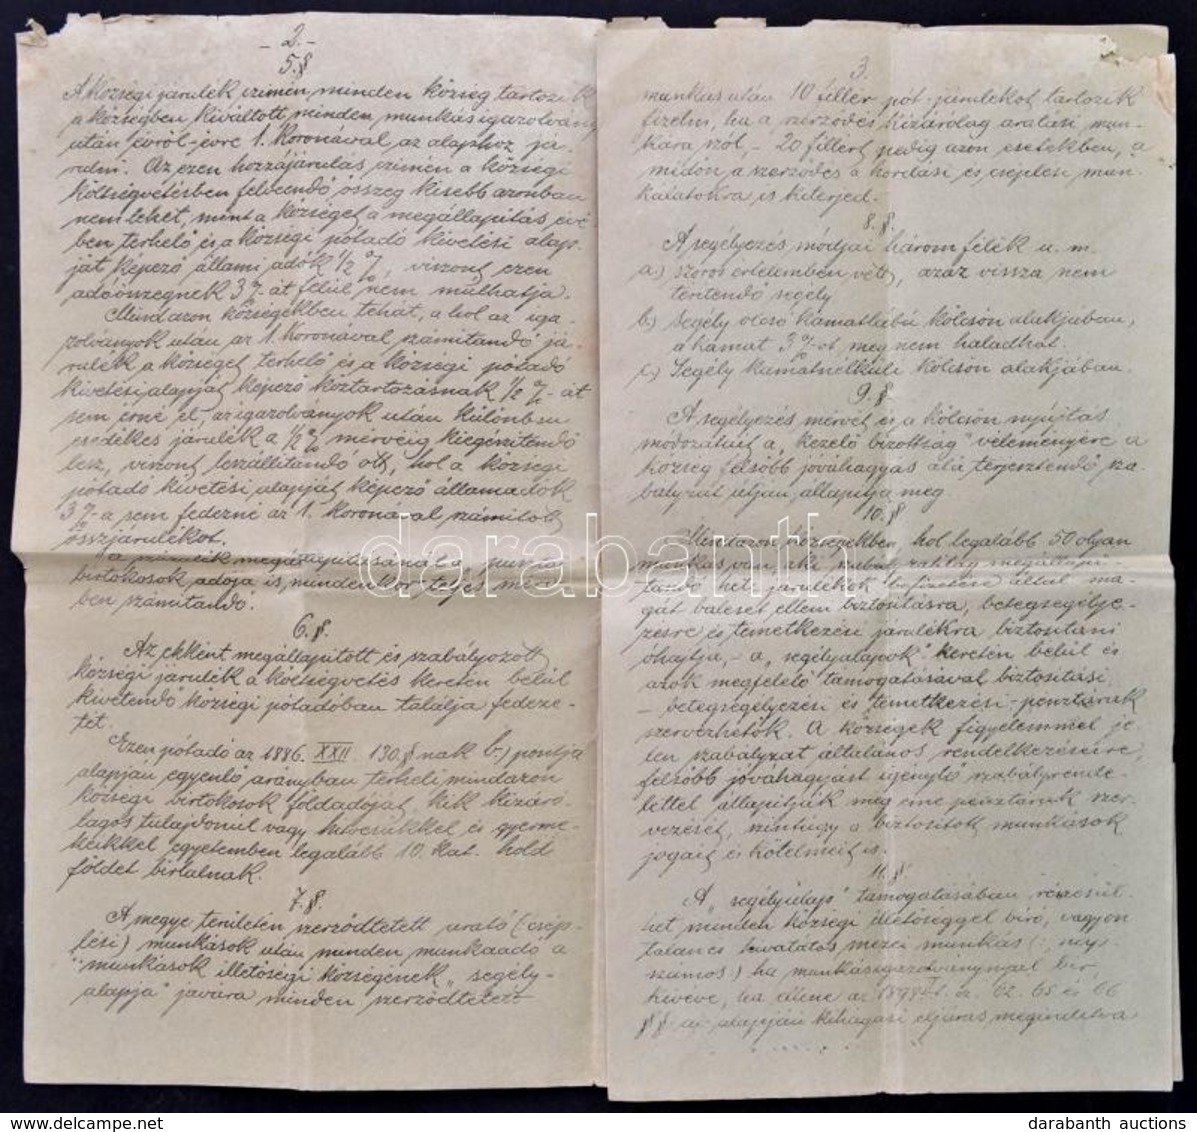 - 2. -
5. §
A községi járulék czimén, minden község tartozik
a községben kiváltott minden munkásigazolvány
után évről-évre 1. Koronával az alaphoz já
rulni. Az ezen hozzájárulás czimén a községi
költségvetésben felveendő összeg kisebb azonban
nem lehet, mint a községet a megállapitás évé
ben terhelő és a községi pótadó kivetési alap
ját képező állami adók 1/2 %, viszont ezen
adóösszegnek 3 %-át felül nem mulhatja.
Mindazon községekben tehát, a hol az iga
zolványok után az 1. Koronával számitandó já
rulék a községet terhelő és a községi pótadó
kivetési alapját képező köztartozásnak 1/2 %-át
sem érné el, az igazolványok után különben
esedékes járulék a 1/2 % mérvéig kiegészitendő
lesz, viszont leszállitandó ott, hol a községi
pótadó kivetési alapját képező államadók
3 %-a sem fedezné az 1. Koronával számitott
összjárulékot.
a megállapitásánál a puszta
birtokosok adója is mindenkor teljes mérv
ben számitandó.
6. §.
Az ekként megállapitott és szabályozott
községi járulék a költségvetés keretén belül
kivetendő községi pótadóban találja fedeze-
tét.
Ezen pótadó az 1886. XXII. 130. § nak b.) pontja
alapján egyenlő arányban terheli mindazon
községi birtokosok földadóját, kik kizáró-
lagos tulajdonúl vagy nevesükkel és gyerme-
keikkel egyetemben legalább 10. kat. hold
földet birtalnak.
7. §.
A megye területén szerződtetett arató (:csép-
lési) munkások után minden munkaadó a
"munkások illetőségi községének" segély-
alapja" javára minden szerződtetett
3.
munkás után 10 fillér pót-járulékot tartozik
fizetni, ha a szerződés kizárólag aratási mun-
kára szól, - 20 fillért pedig azon esetekben, a
midőn a szerződés a hordási és cséplési mun-
kálatokra is kiterjed.
8. §.
A segélyezés módjai három félék u. m.
a.) szoros értelemben vett, azaz vissza nem
téritendő segély
b.) Segély olcsó kamatlábú kölcsön alakjában,
a kamat 3 %-ot meg nem haladhat.
c.) Segély kamatnélküli kölcsön alakjában.
9. §
A segélyezés mérvét és a kölcsön nyújtás
módozatait a "kezelő bizottság" véleményére a
község felsőbb jóváhagyás alá terjesztendő sza-
bályzat útján állapitja meg.
10. §
Mindazon községekben, hol legalább 50 olyan
munkás van, aki megállapi-
tandó heti járulékok befizetése által ma-
gát baleset ellem biztositásra, betegsegélye-
zésre és temetkezési járulékra biztositani
óhajtja, - a "segélyalapok" keretén belül és
azok megfelelő támogatásával biztositási
- betegsegélyezési és temetkezési - pénztárak
szervezhetők. A községek figyelemmel je-
len szabályzat általános rendelkezéseire,
felsőbb jóváhagyást igénylő szabályrende-
lettel állapitják meg eme pénztárak szer-
vezését, mintúgy a biztositott munkások
jogait és kötelmeit is.
11. §.
A "segélyalap" támogatásában részesül-
het minden községi illetőséggel biró, vagyon
talan és mezei munkás (: nap-
számos) ha munkásigazolványnyal bir,
kivéve, ha ellene az 1898 62. 65 és 66
§§-ai alapján kihágási eljárás megindittva